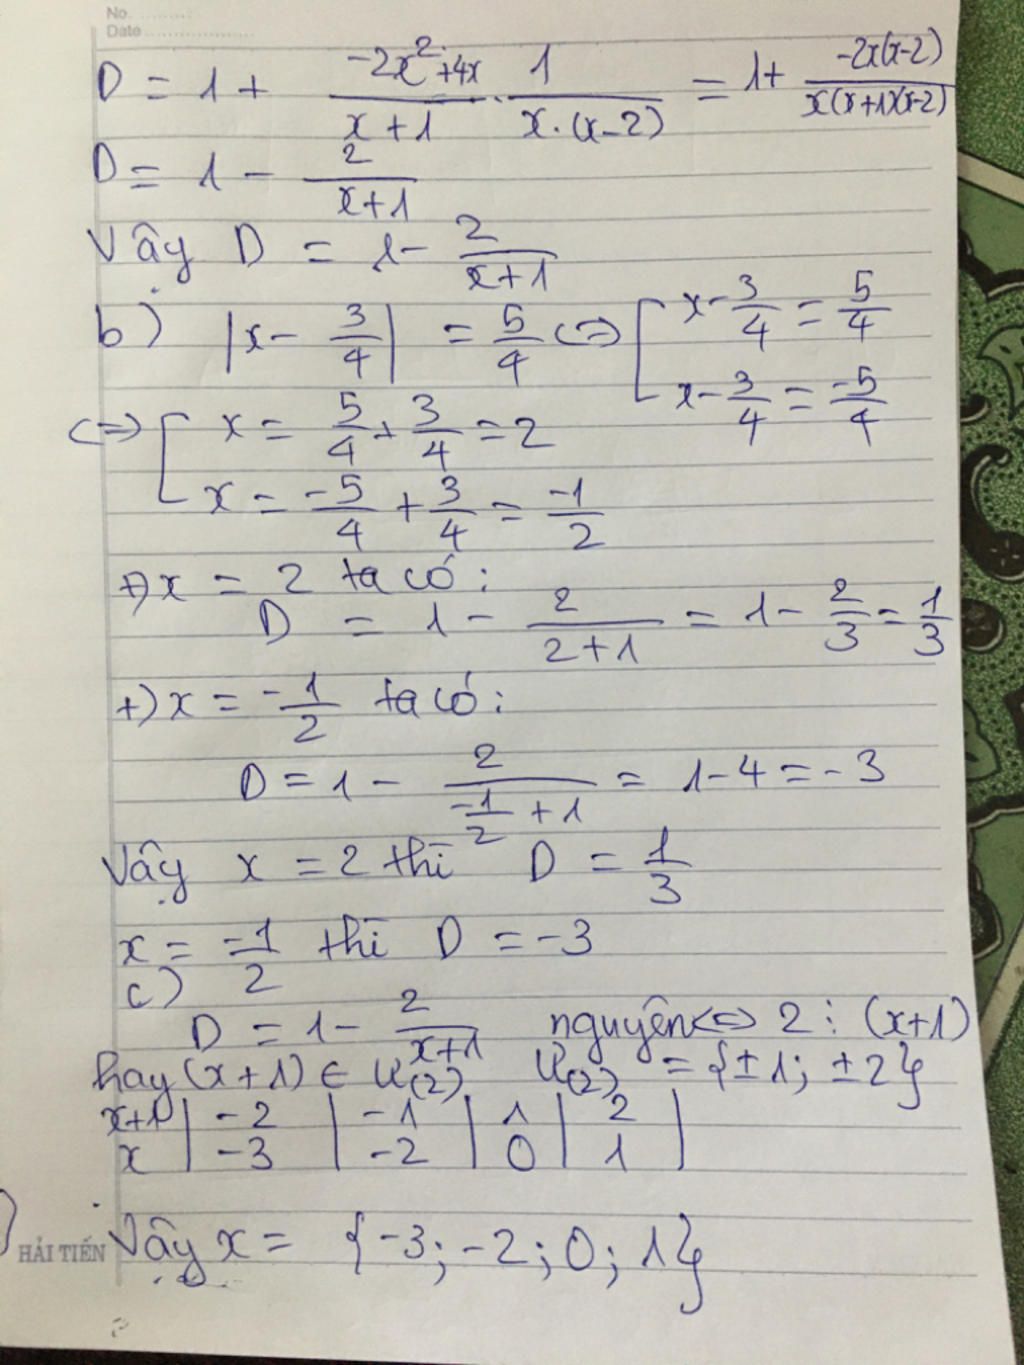 No. ............
Date ..................
D = 1 + (-2x² + 4x)/(x + 1) · 1/(x · (x - 2)) = 1 + (-2x(x-2))/(x(x+1)(x-2))
D = 1 - 2/(x+1)
Vậy D = 1 - 2/(x+1)
b) |x - 3/4| = 5/4 <=> [ x - 3/4 = 5/4
x - 3/4 = -5/4
<=> [ x = 5/4 + 3/4 = 2
x = -5/4 + 3/4 = -1/2
+) x = 2 ta có:
D = 1 - 2/(2+1) = 1 - 2/3 = 1/3
+) x = -1/2 ta có:
D = 1 - 2/(-1/2 + 1) = 1 - 4 = -3
Vậy x = 2 thì D = 1/3
x = -1/2 thì D = -3
c)
D = 1 - 2/(x+1) nguyên <=> 2 ⋮ (x+1)
hay (x+1) ∈ Ư(2) Ư(2) = {±1; ±2}
x+1 | -2 | -1 | 1 | 2 |
x | -3 | -2 | 0 | 1 |
HẢI TIẾN Vậy x = {-3; -2; 0; 1}